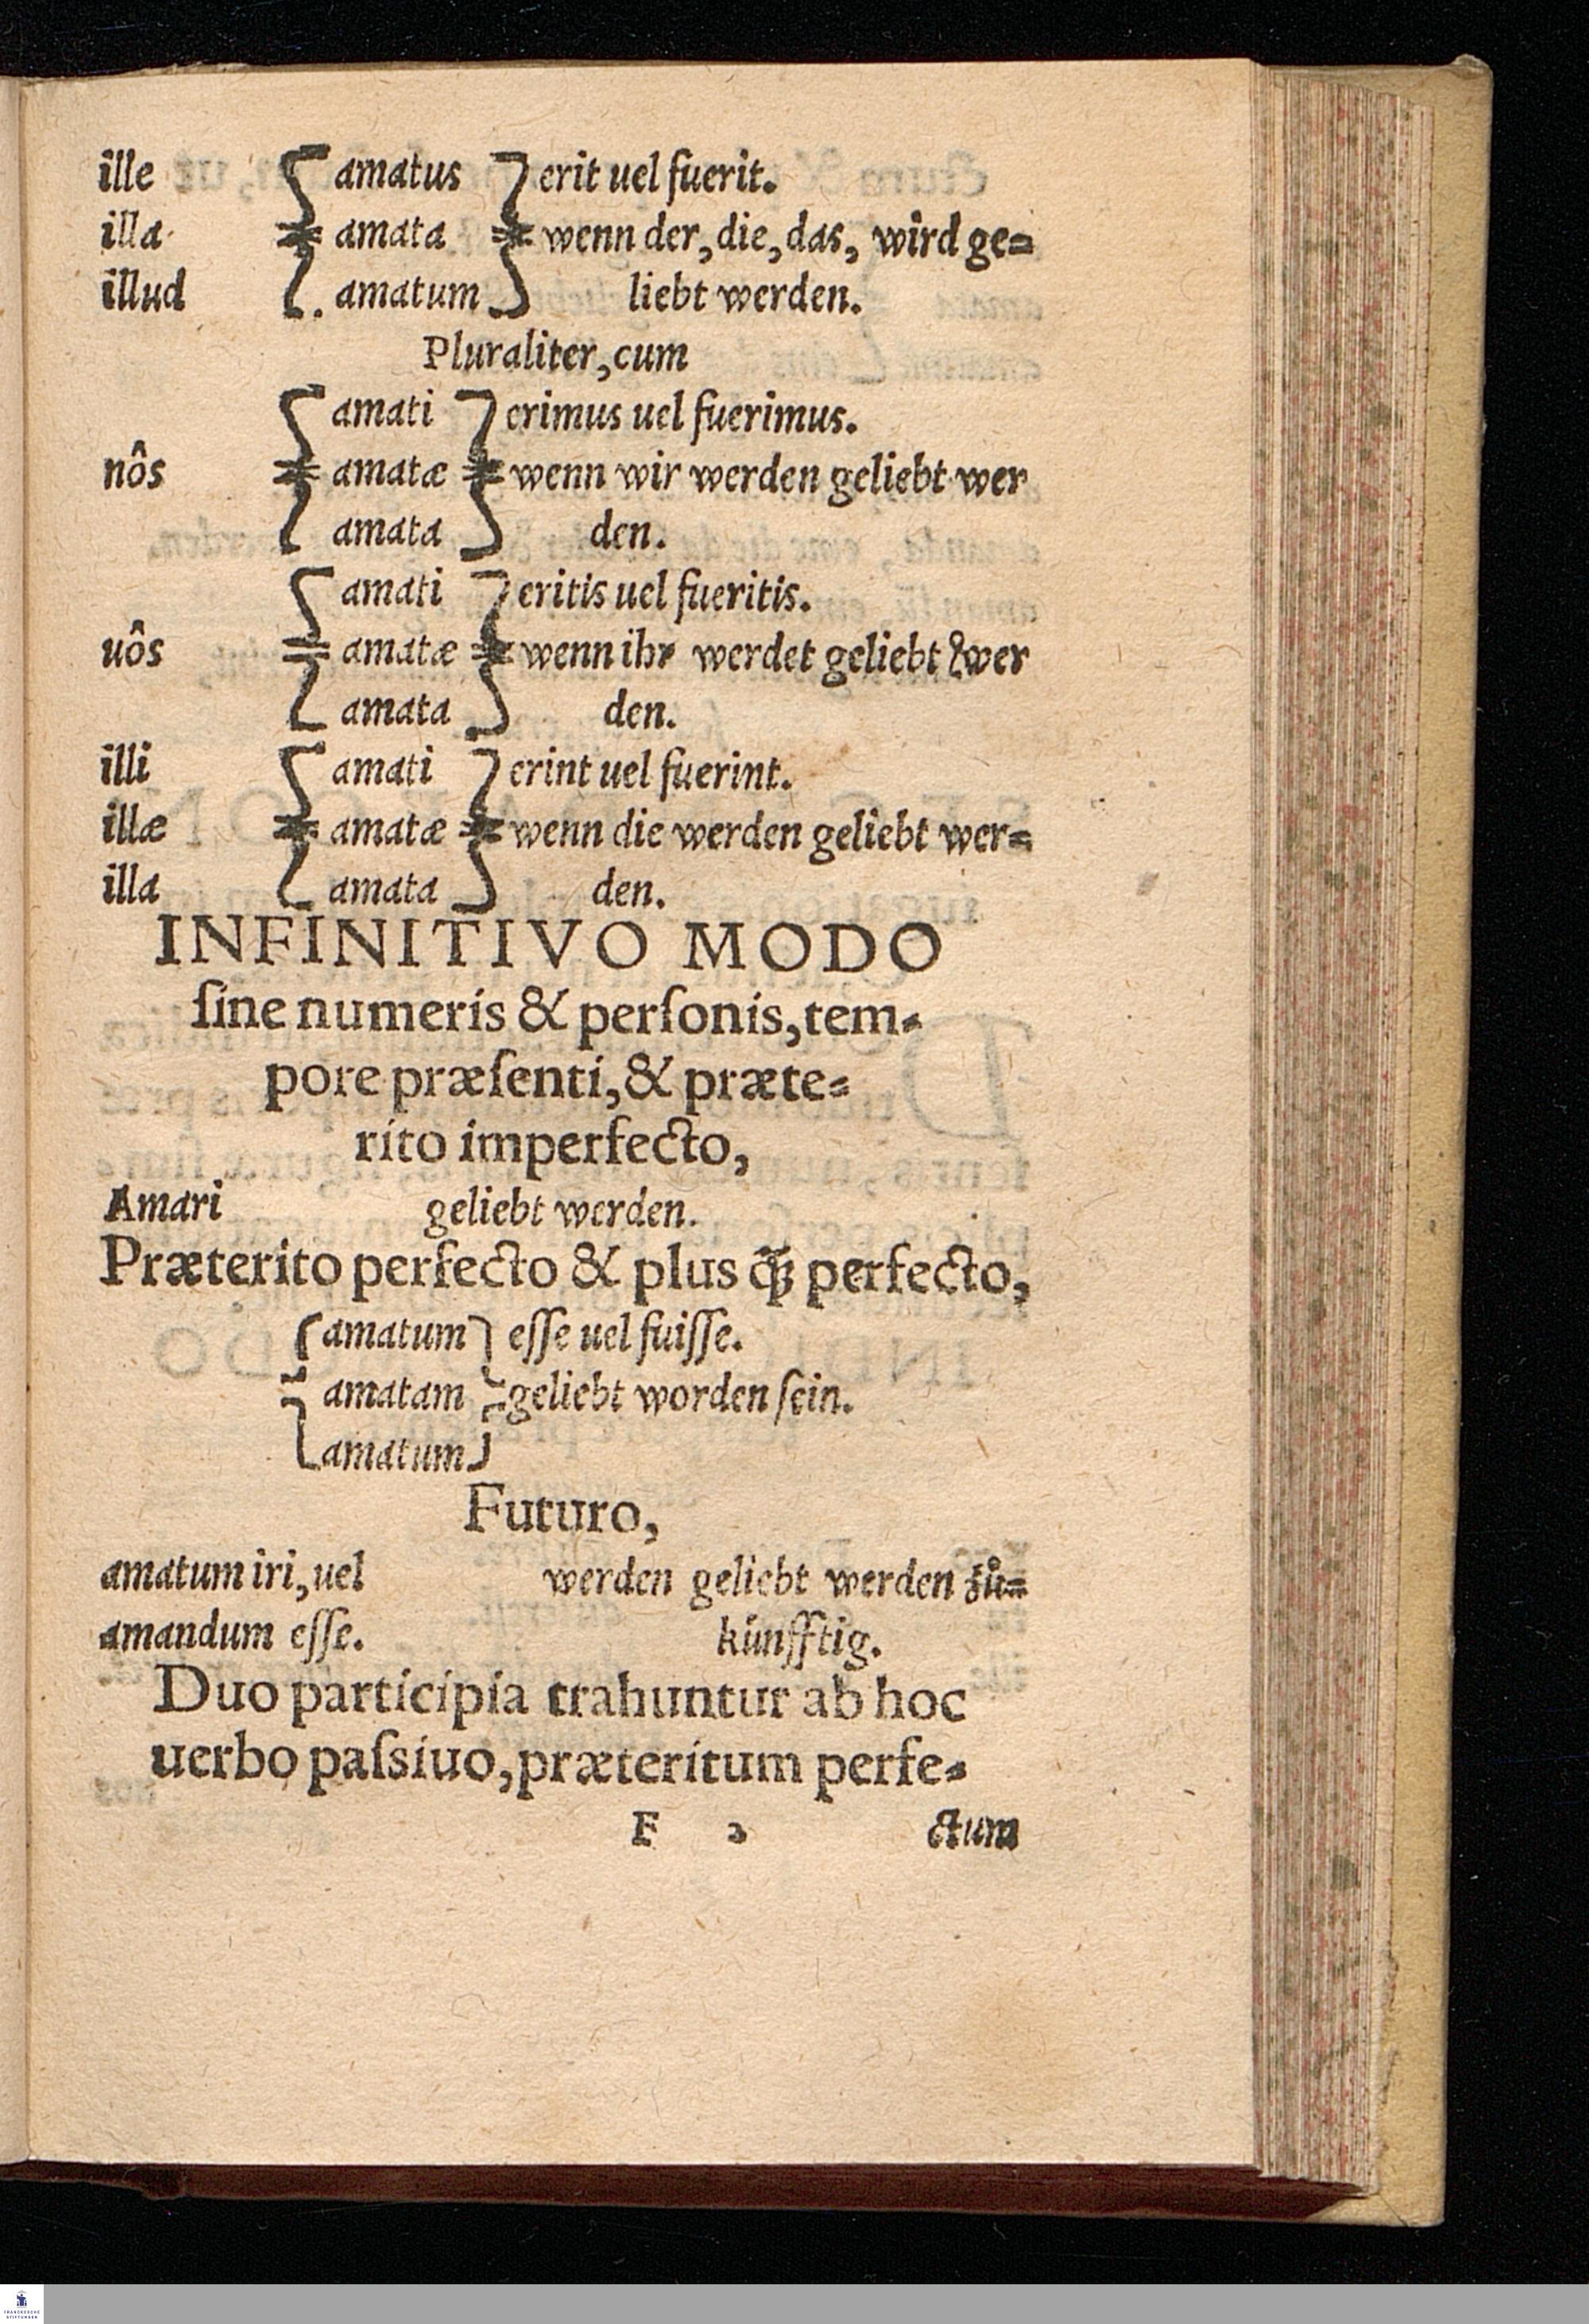 ille amatus erit uel fuerit.
illa amata wenn der, die, das, wird ge=
illud amatum liebt werden.
Pluraliter, cum
amati erimus uel fuerimus.
nôs amatæ wenn wir werden geliebt wer
amata den.
amati eritis uel fueritis.
uôs amatæ wenn ihr werdet geliebt wer
amata den.
illi amati erint uel fuerint.
illæ amatæ wenn die werden geliebt wer=
illa amata den.
INFINITIVO MODO
ſine numeris & perſonis, tem=
pore præſenti, & præte=
rito imperfecto,
Amari geliebt werden.
Præterito perfecto & plus q̃ꝫ perfecto,
amatum eſſe uel fuiſſe.
amatam geliebt worden ſein.
amatum
Futuro,
amatum iri, uel werden geliebt werden zů=
amandum eſſe. künfftig.
Duo participia trahuntur ab hoc
uerbo paſsiuo, præteritum perfe=
F ctum
FRANCKESCHE
STIFTUNGEN